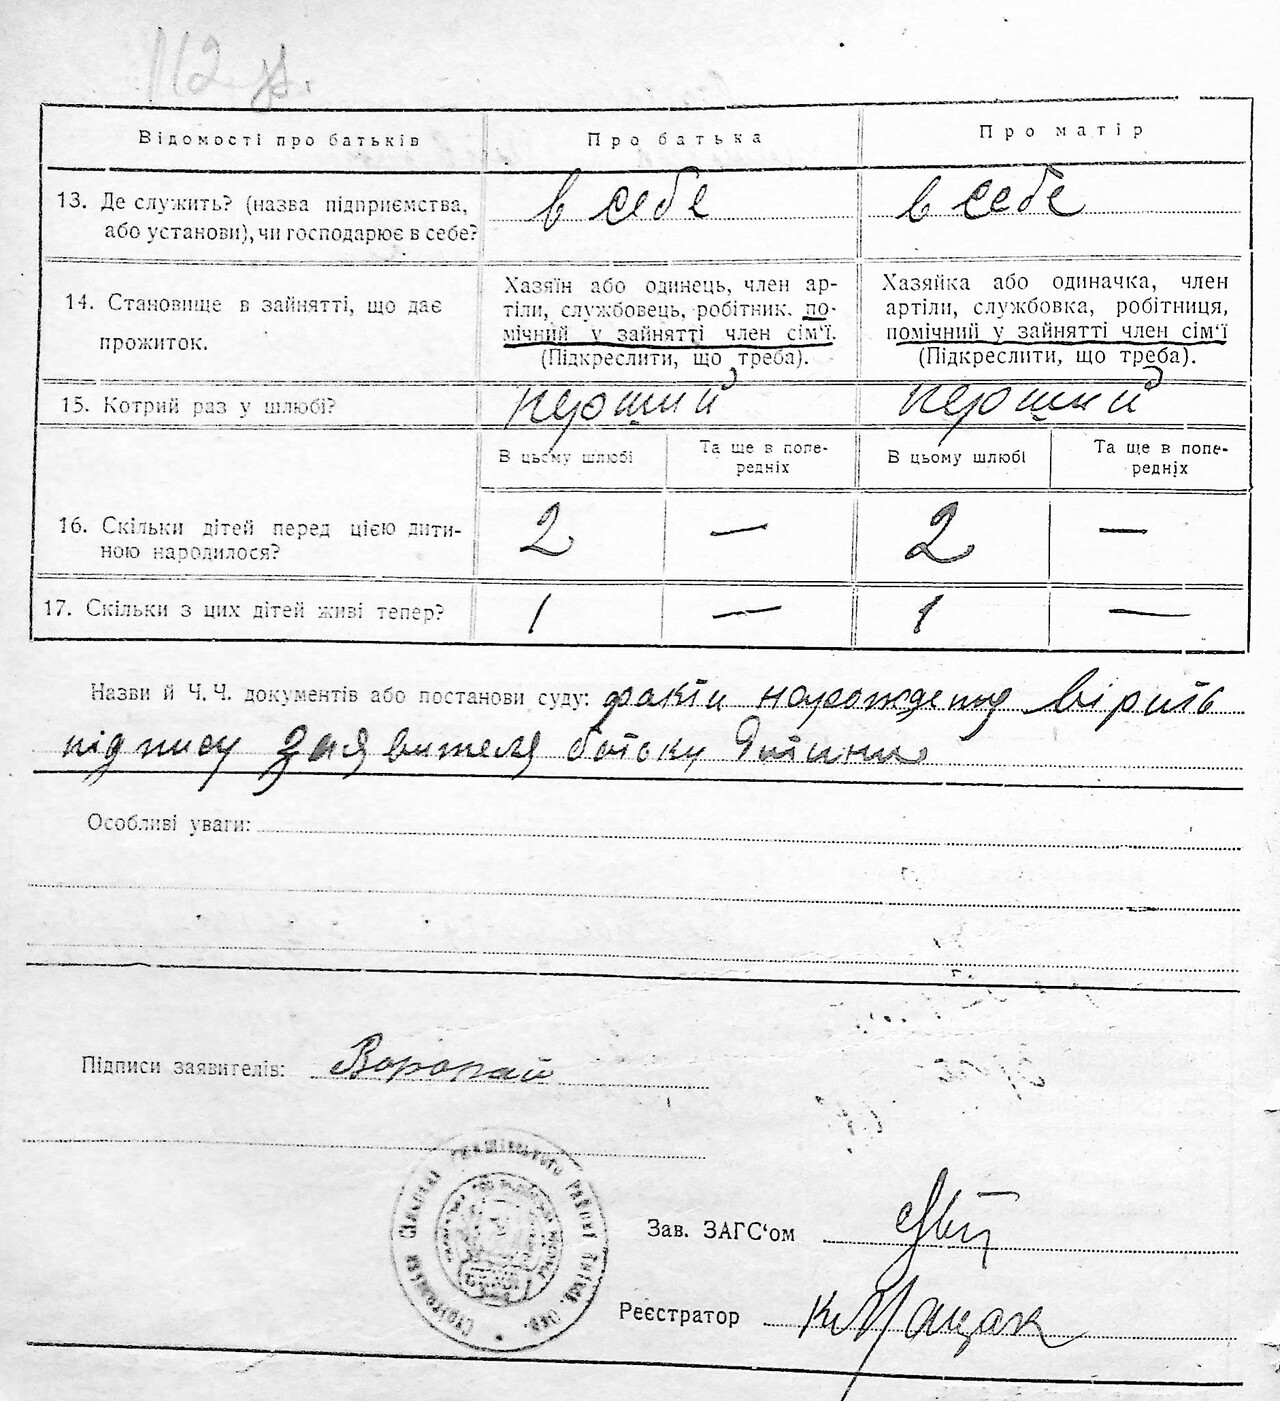 112 зв.
Відомості про батьків
Про батька
Про матір
13. Де служить? (назва підприємства, або установи), чи господарює в себе?
в себе
в себе
14. Становище в зайнятті, що дає прожиток.
Хазяїн або одинець, член ар-
тіли, службовець, робітник. по-
мічний у зайнятті член сім‘ї.
(Підкреслити, що треба).
Хазяйка або одиначка, член
артіли, службовка, робітниця,
помічний у зайнятті член сім‘ї
(Підкреслити, що треба).
15. Котрий раз у шлюбі?
перший
перший
В цьому шлюбі
Та ще в попе-
редніх
В цьому шлюбі
Та ще в попе-
редніх
16. Скільки дітей перед цією дити-
ною народилося?
2 — 2 —
17. Скільки з цих дітей живі тепер?
1 — 1 —
Назви й Ч. Ч. документів або постанови суду: факти
підпису заявителя батьку
Особливі уваги:
Підписи заявителів: Воропай
Зав. ЗАГС‘ом
Реєстратор